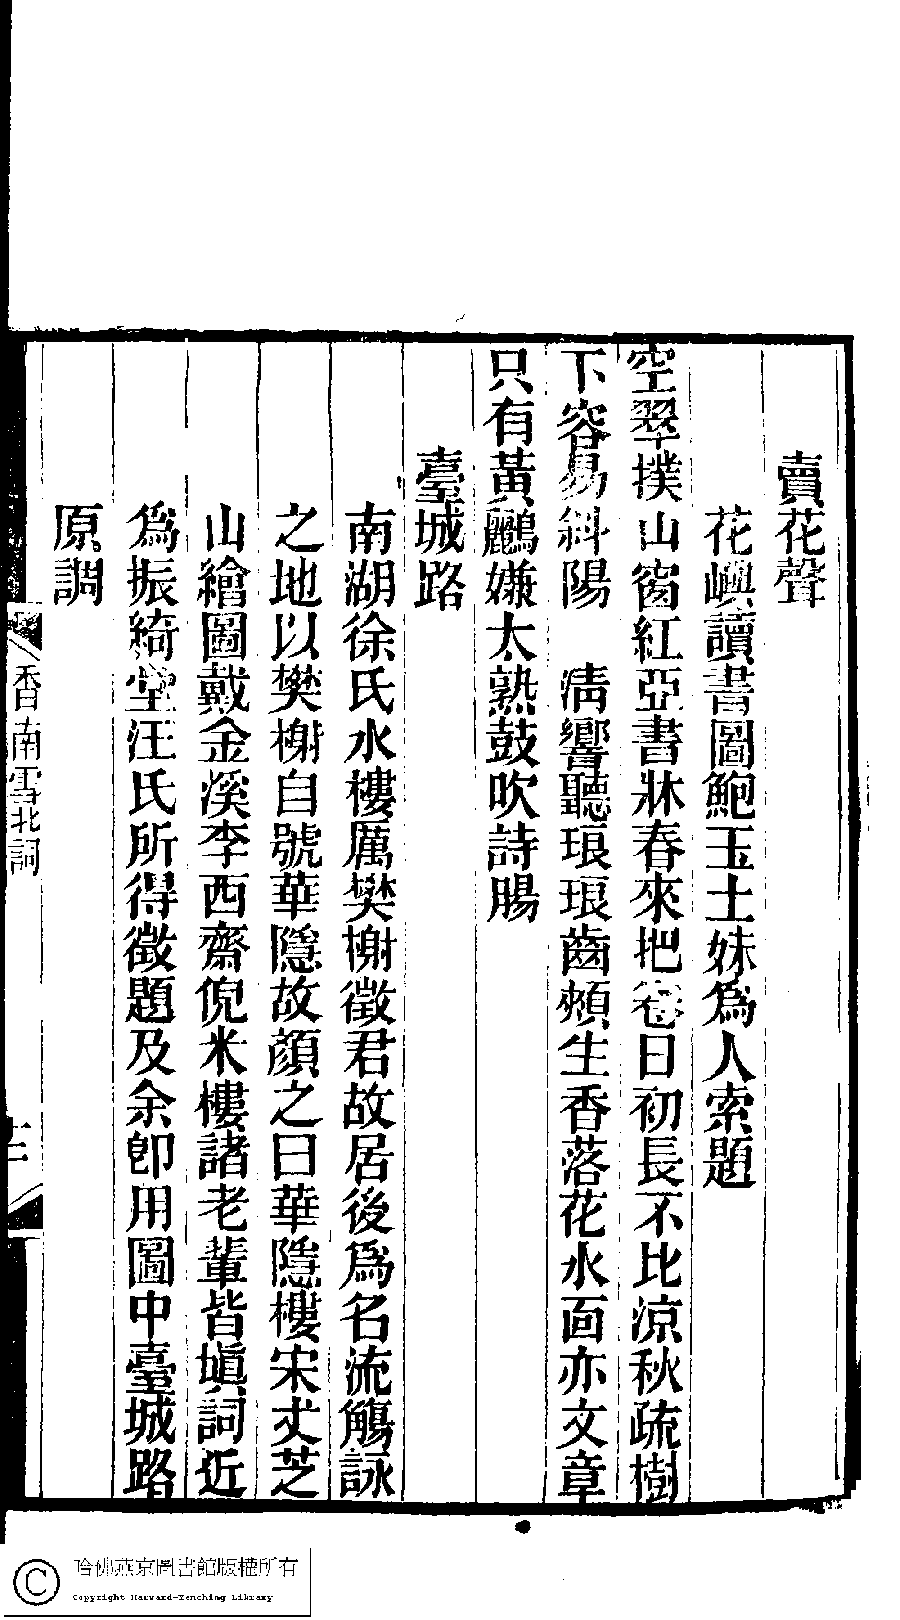 賣花聲
花嶼讀書圖鮑玉士妹爲人索題
空翠撲山窗紅亞書牀春來把卷日初長不比凉秋疏樹
下容易斜陽　清響聽琅琅齒頰生香落花水面亦文章
只有黃鸝嫌太熟鼓吹詩腸
臺城路
南湖徐氏水樓厲樊榭徵君故居後爲名流觴詠
之地以樊榭自號華隱故顏之曰華隱樓宋丈芝
山繪圖戴金溪李西齋倪米樓諸老輩皆塡詞近
爲振綺堂汪氏所得徵題及余卽用圖中臺城路
原調
香南雪北詞
哈佛燕京圖書館版權所有
Copyright Harvard-Yenching Library